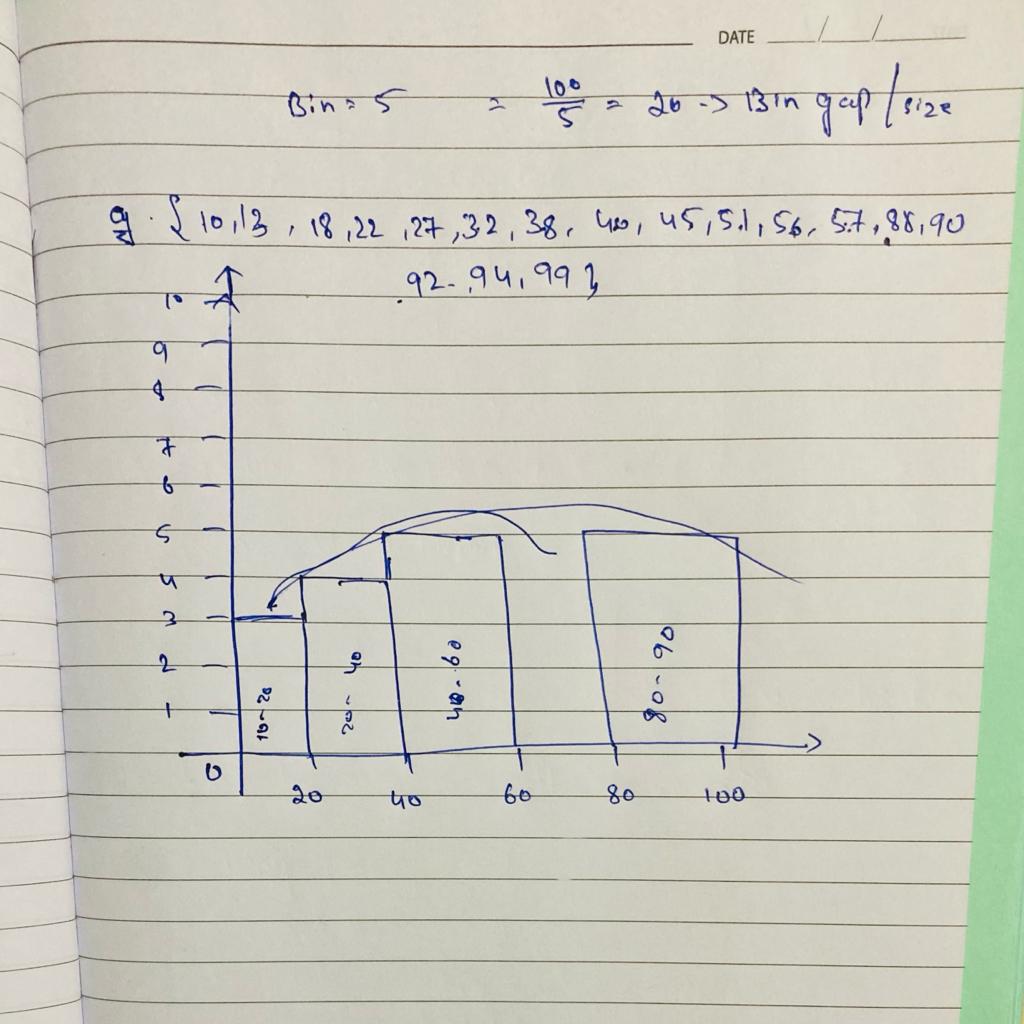 DATE / /
Bin = 5 = 100/5 = 20 -> Bin gap / size
eg. { 10, 13, 18, 22, 27, 32, 38, 40, 45, 51, 56, 57, 88, 90
92, 94, 99 }
10
9
8
7
6
5
4
3
2
1
10-20 20-40 40-60 80-90
0 20 40 60 80 100